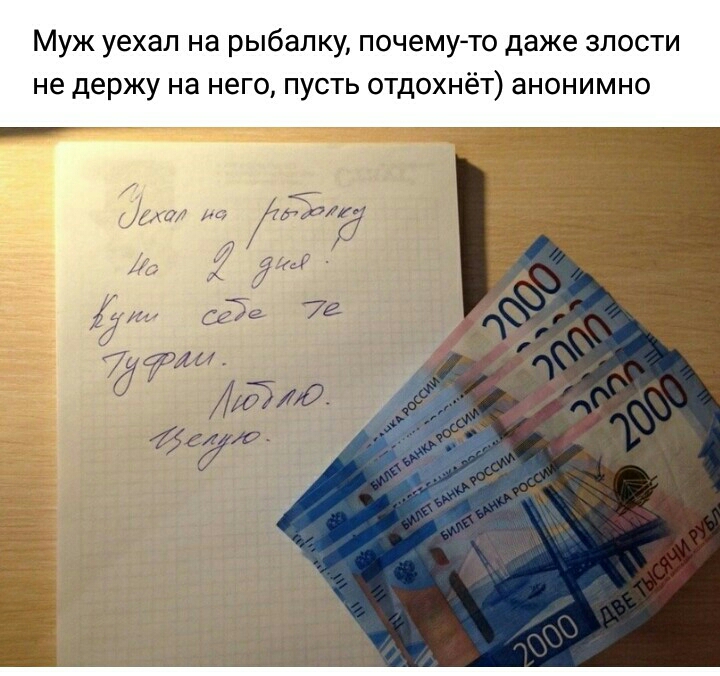 Муж уехал на рыбалку, почему-то даже злости
не держу на него, пусть отдохнёт) анонимно
Уехал на рыбалку
на 2 дня!
Купи себе те
туфли.
Люблю.
Целую.
2000
2000
2000
2000
БИЛЕТ БАНКА РОССИИ
БИЛЕТ БАНКА РОССИИ
БИЛЕТ БАНКА РОССИИ
2000
ДВЕ ТЫСЯЧИ РУБЛ